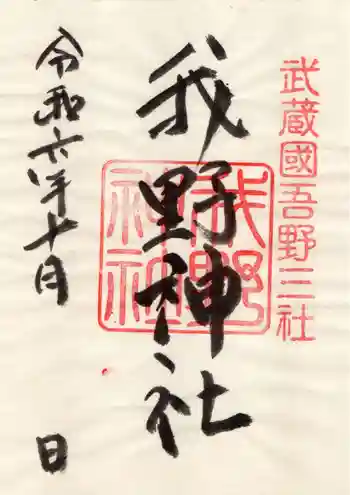 武蔵國吾野三社
我野神社
我野神社
令和六年十月 日